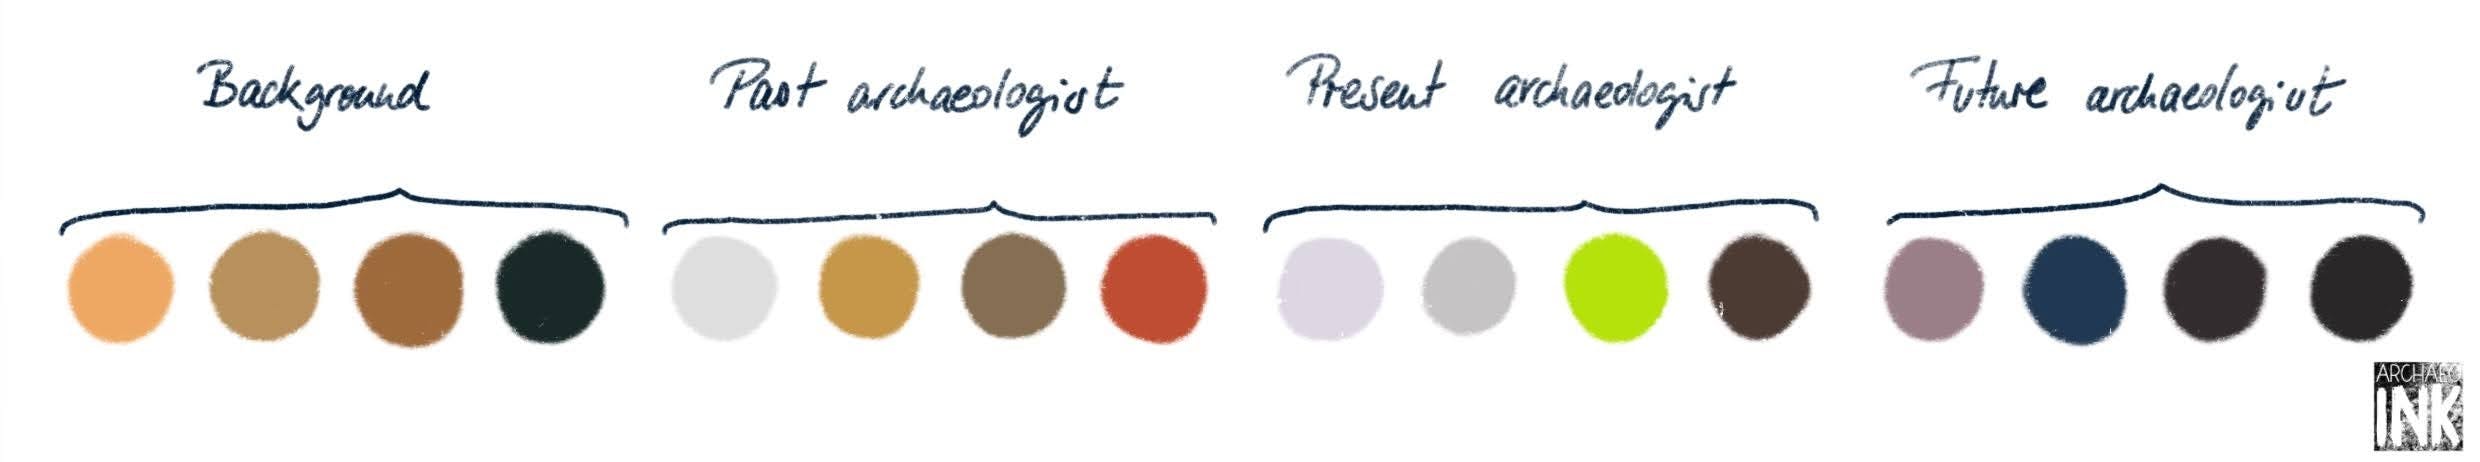 Background
Past archaeologist
Present archaeologist
Future archaeologist
ARCHAEO
INK